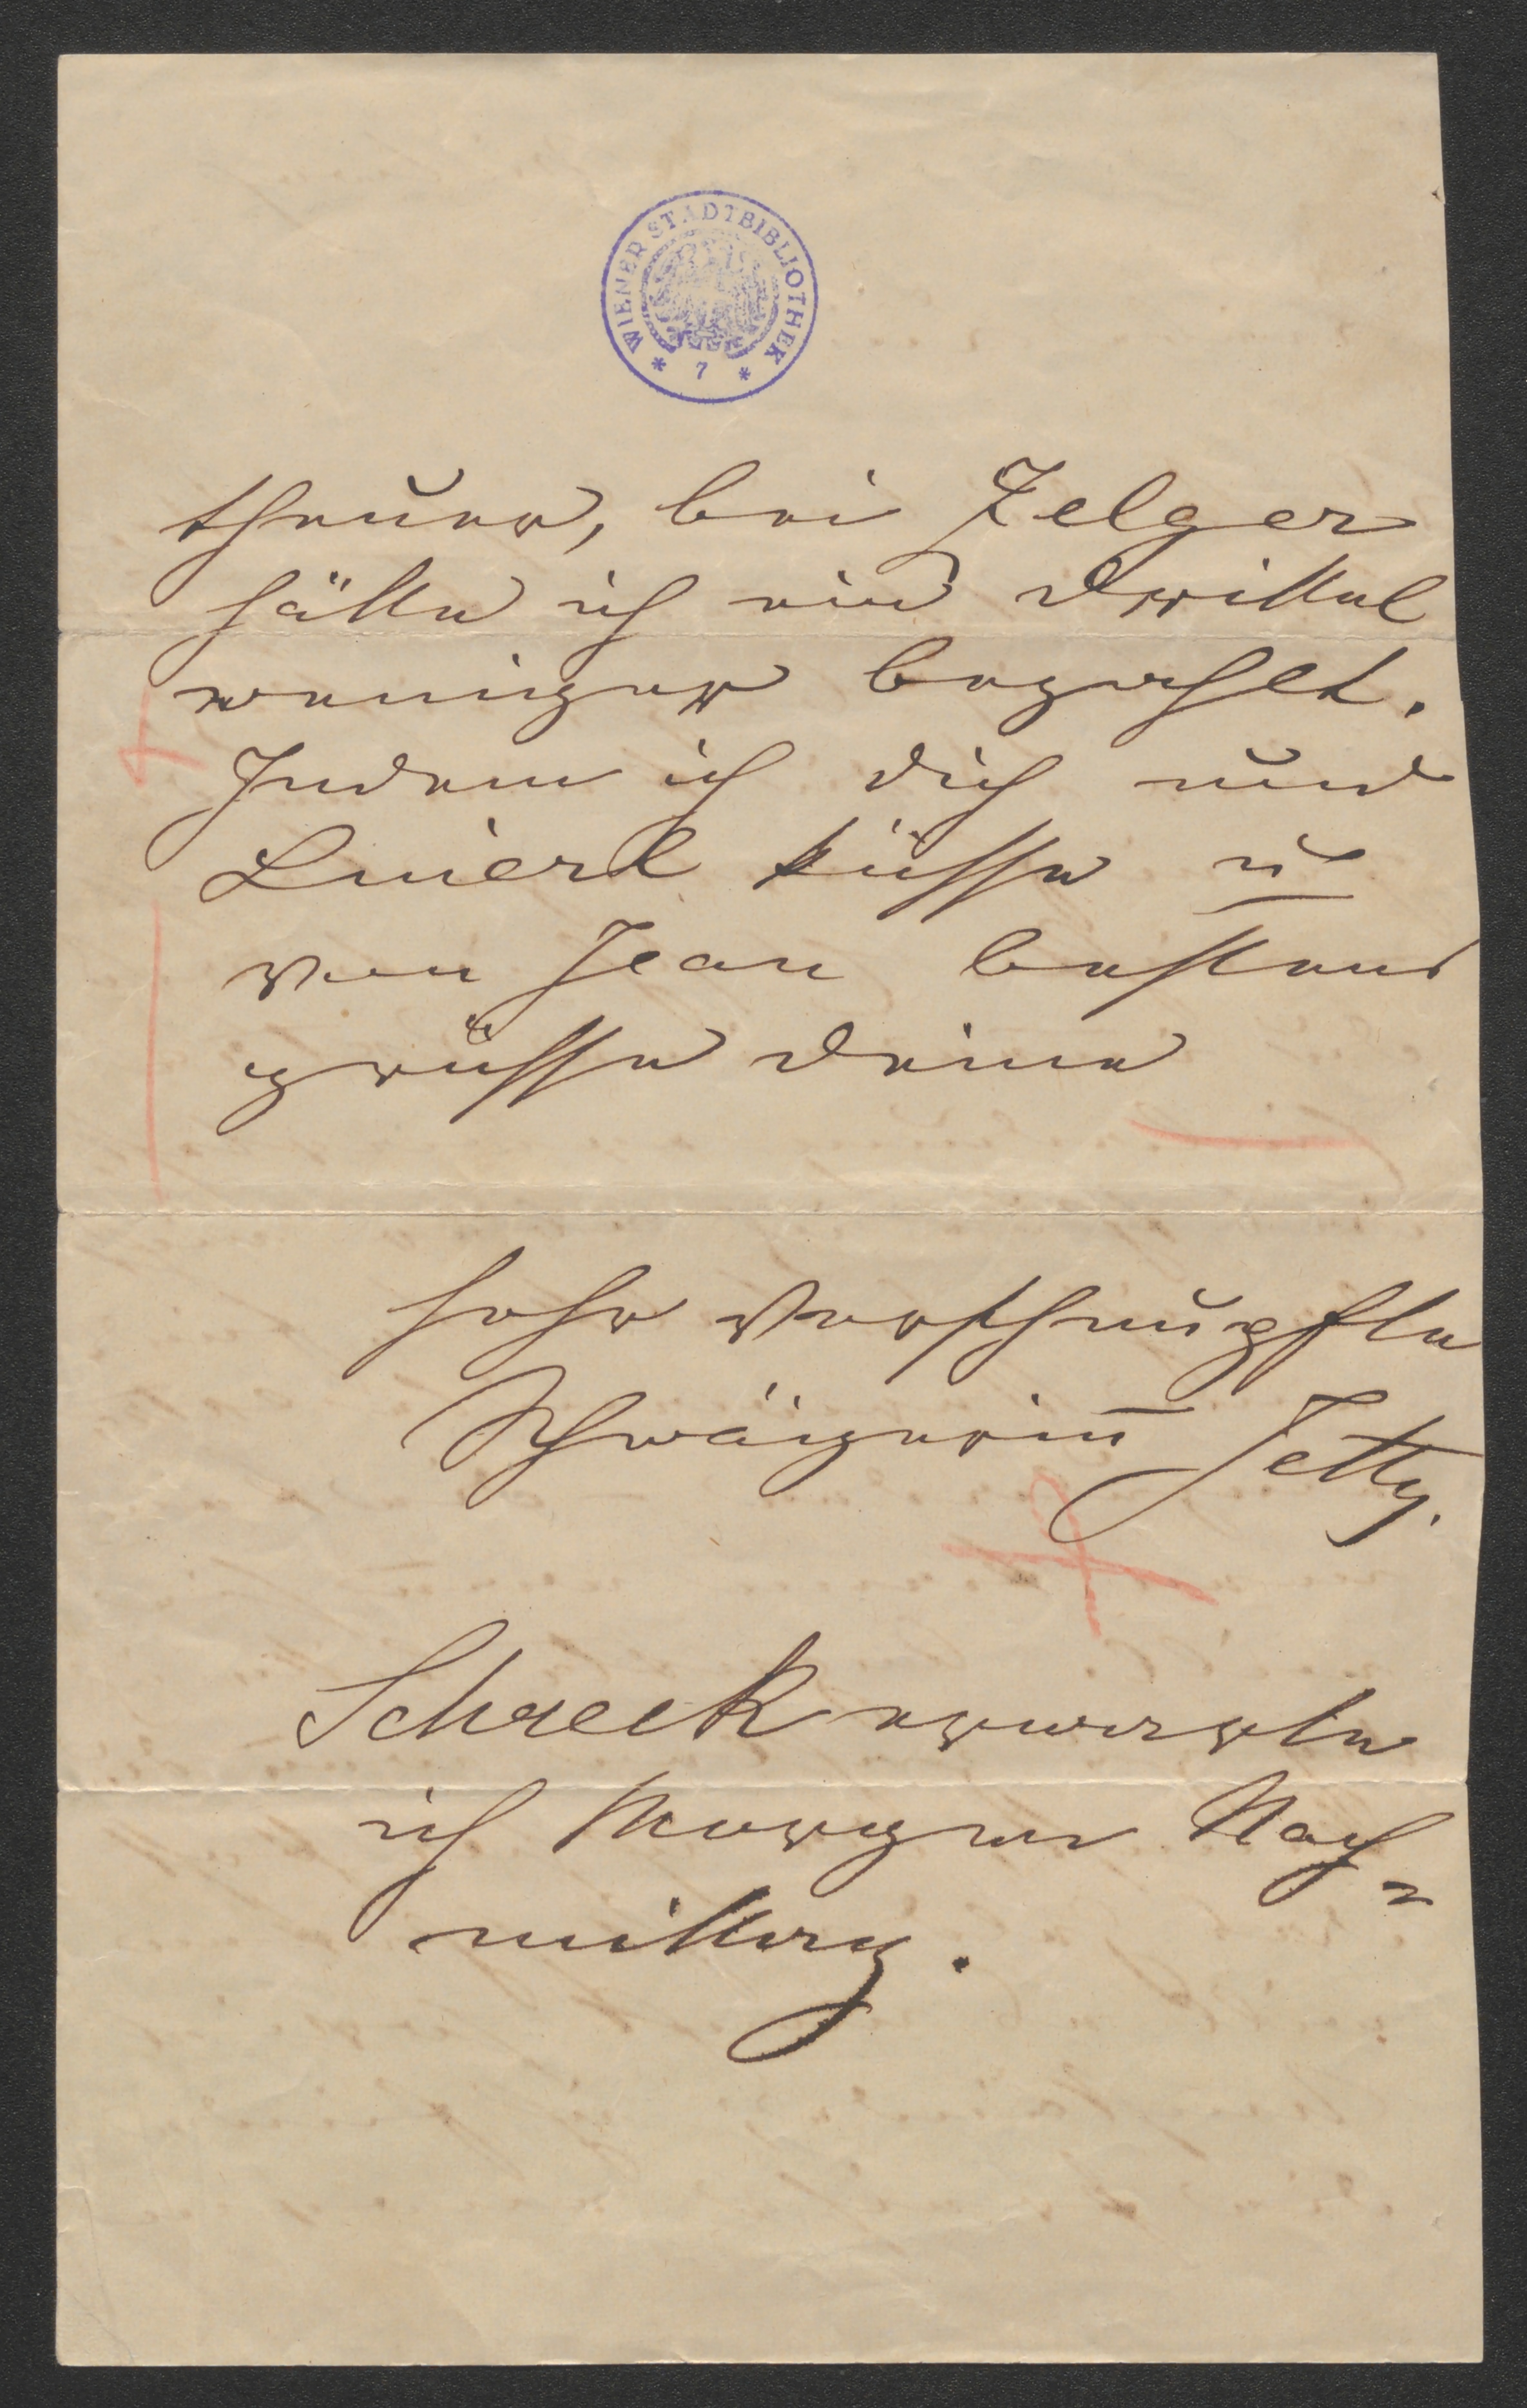 WIENER STADTBIBLIOTHEK
* 7 *
theuer, bei Zelger
hätte ich ein Drittel
weniger bezahlt.
Indem ich dich und
küsse u
von Jean bestens
grüsse deine
sehr verschnupfte
Schwägerin̅ Jetty.
Schreck erwarte
ich Morgen Nach=
mittag.